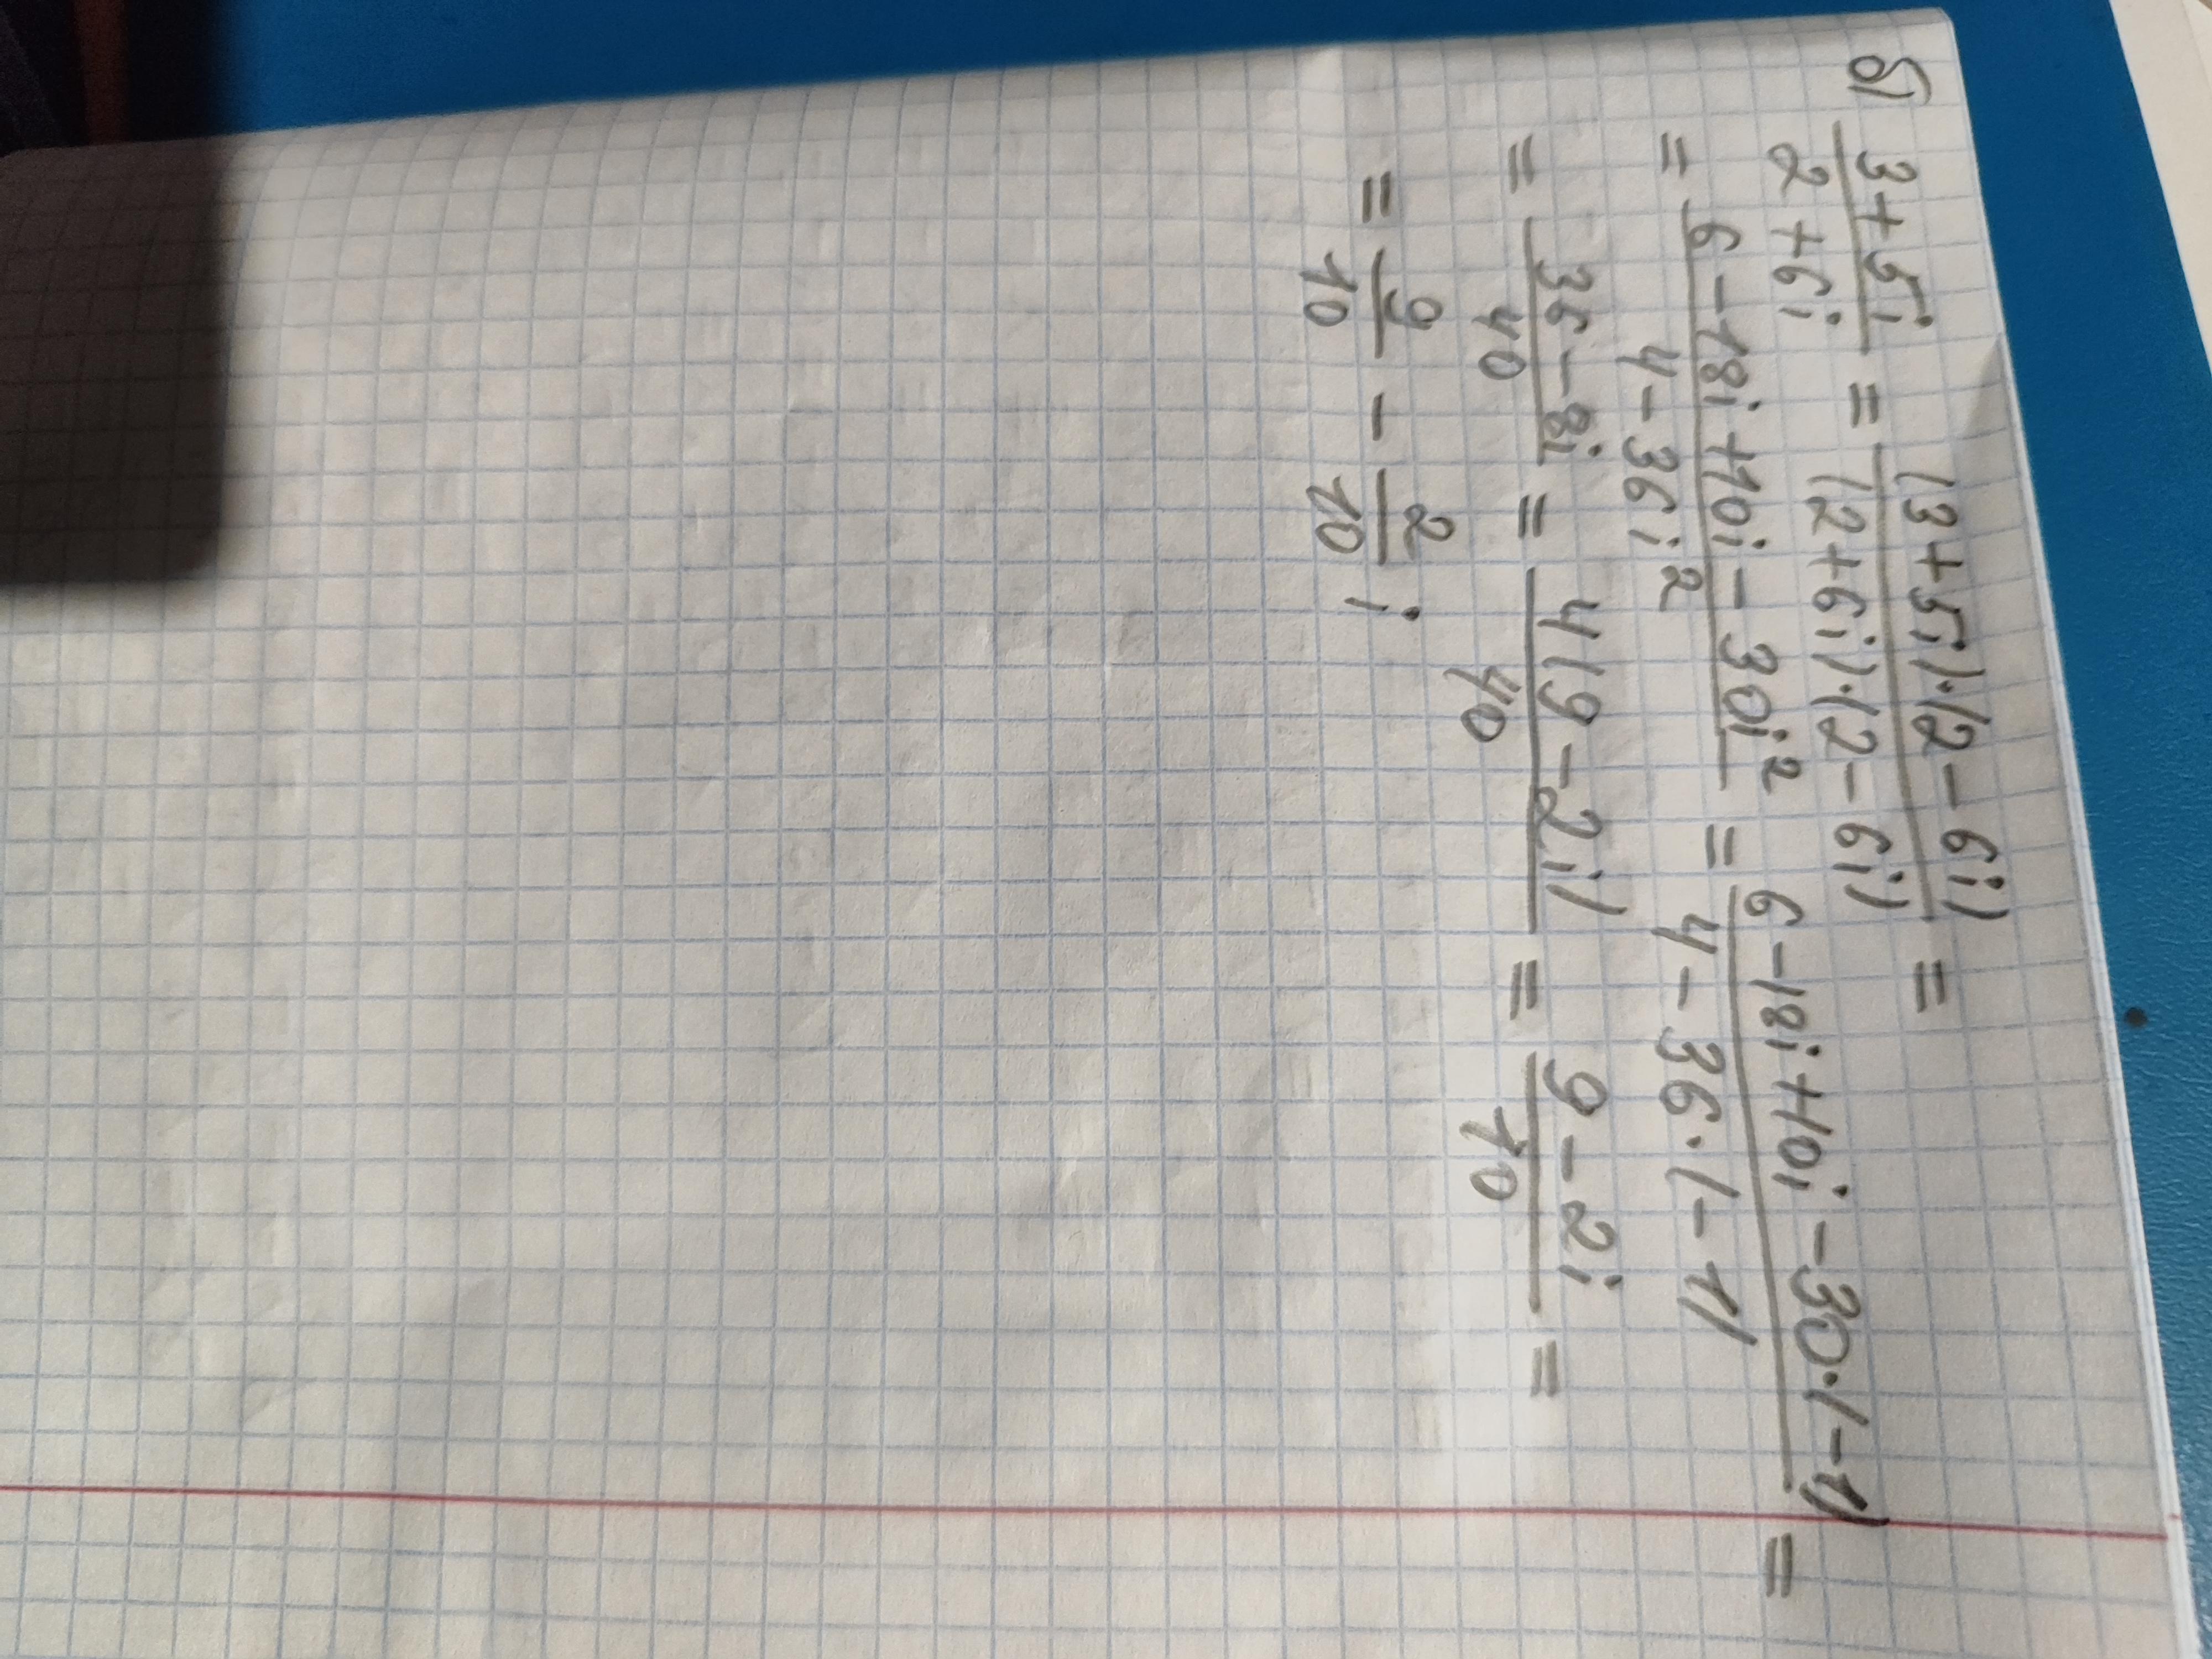 б) (3+5i)/(2+6i) = ((3+5i)·(2-6i))/((2+6i)·(2-6i)) =
= (6-18i+10i-30i²)/(4-36i²) = (6-18i+10i-30·(-1))/(4-36·(-1)) =
= (36-8i)/40 = 4(9-2i)/40 = (9-2i)/10 =
= 9/10 - 2/10 i